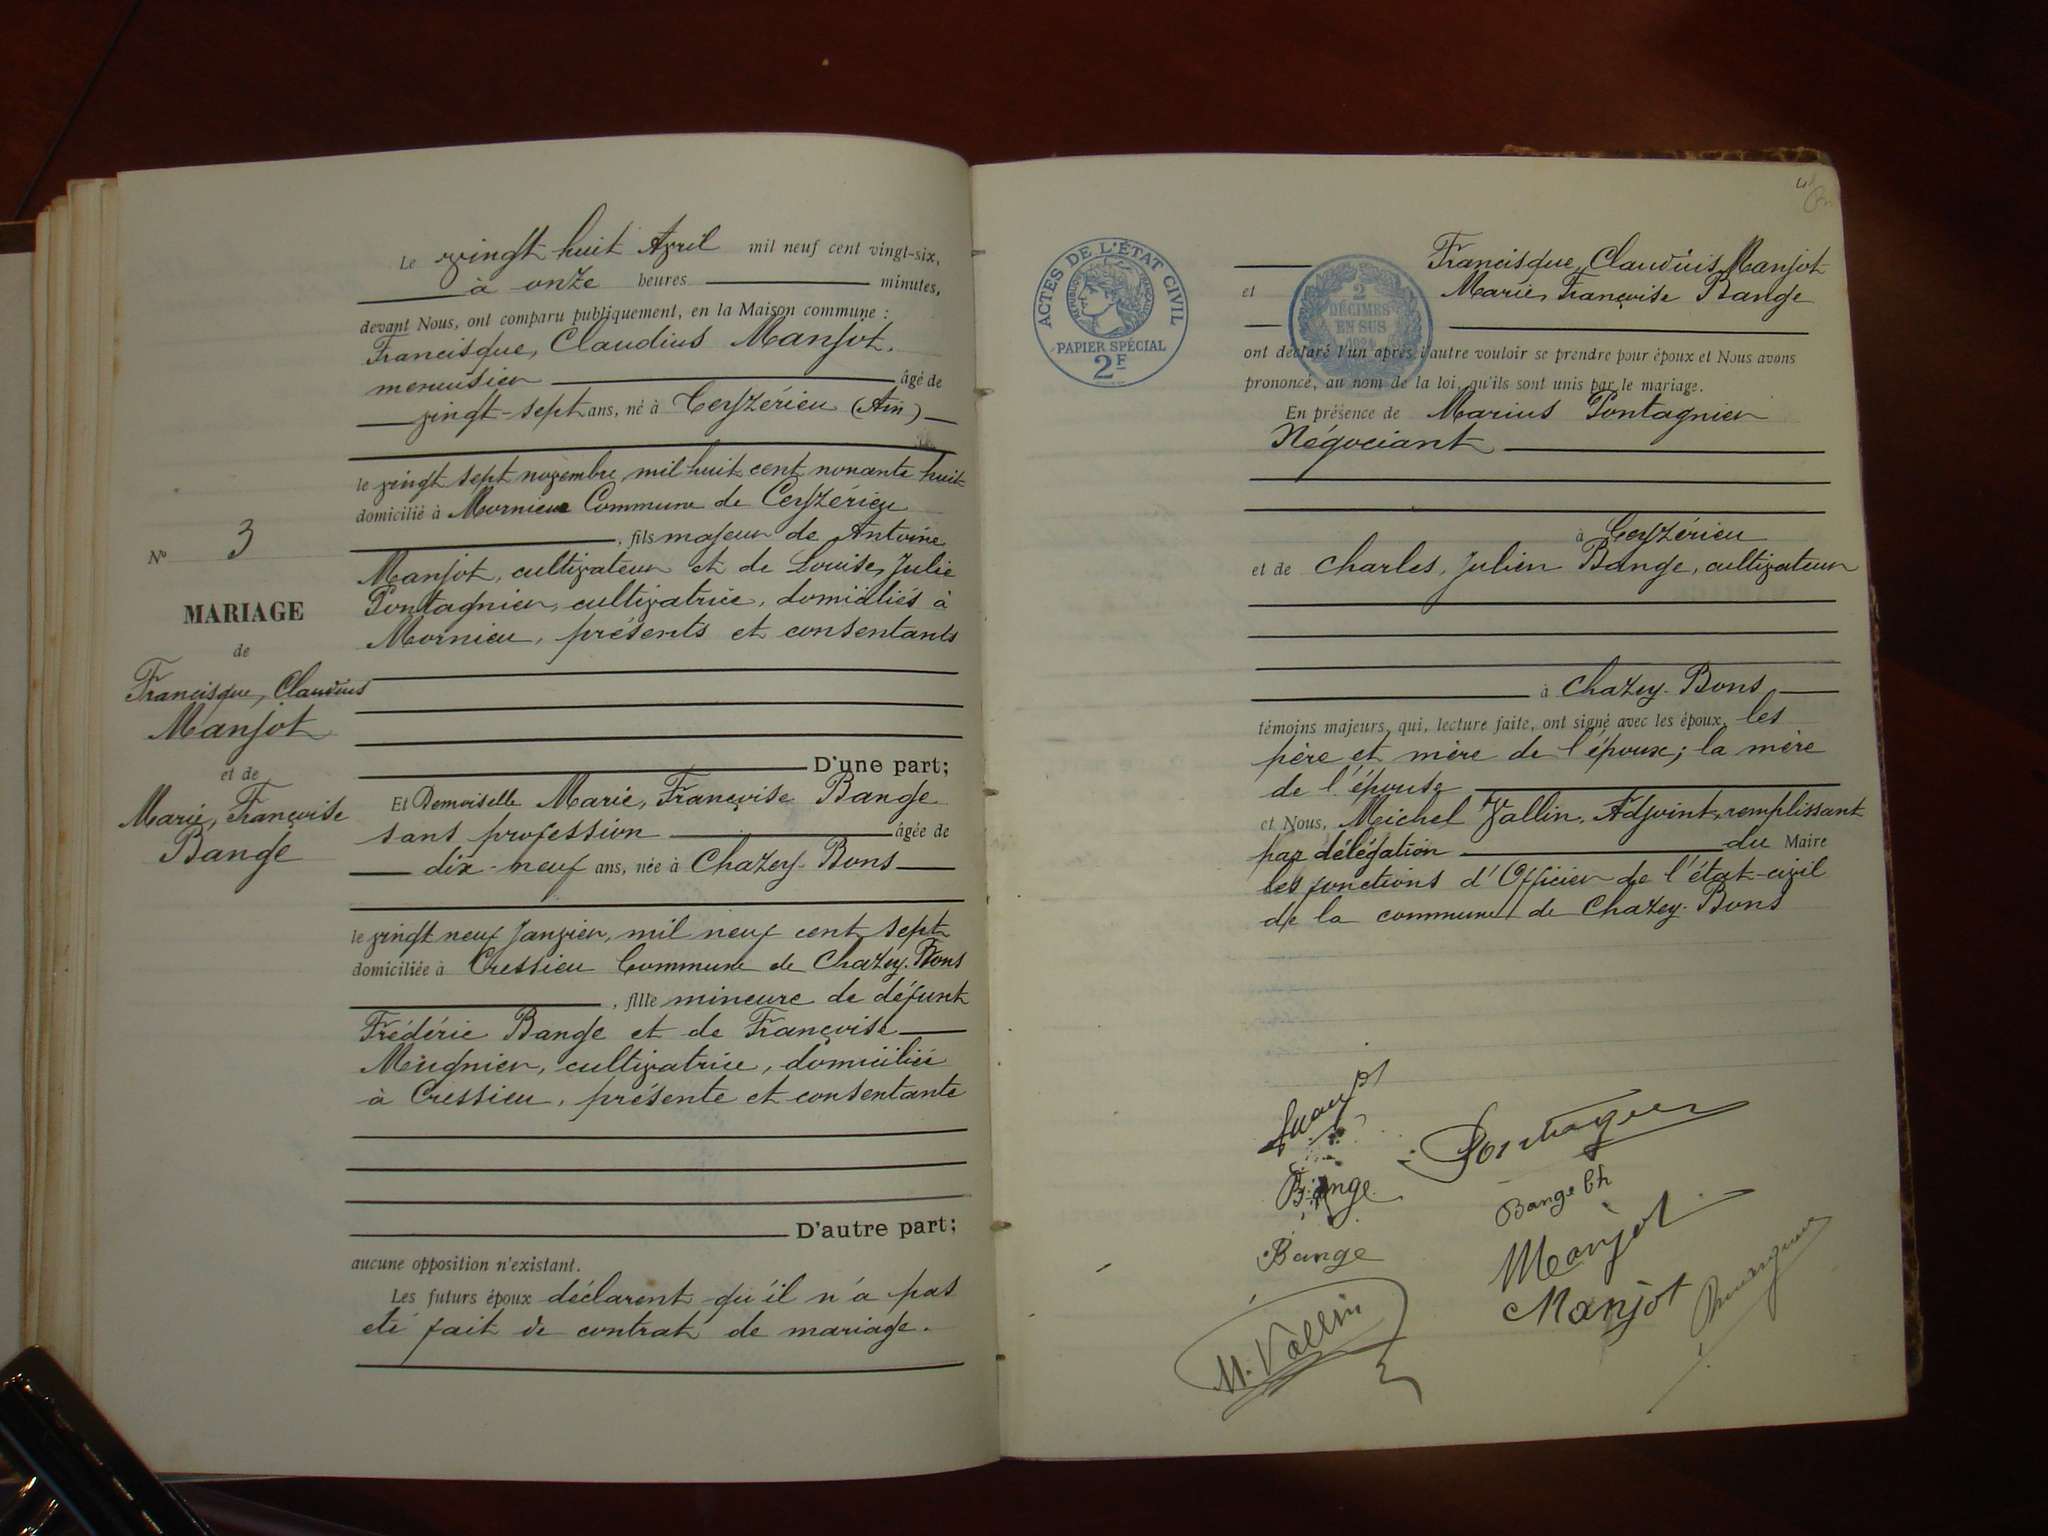 Le vingt huit Avril mil neuf cent vingt-six,
à onze heures minutes,
devant Nous, ont comparu publiquement, en la Maison commune :
Francisque, Claudius Manjot,
menuisier âgé de
vingt-sept ans, né à Ceyzérieu (Ain)
le vingt sept novembre mil huit cent nonante huit
domicilié à Mornieu Commune de Ceyzérieu
, fils majeur de Antoine
Manjot, cultivateur et de Louise, Julie
Pontagnier, cultivatrice, domiciliés à
Mornieu, présents et consentants
D'une part;
Et Demoiselle Marie, Françoise Bange
sans profession âgée de
dix-neuf ans, née à Chazey-Bons
le vingt neuf Janvier, mil neuf cent sept
domiciliée à Cressieu Commune de Chazey-Bons
, fille mineure de défunt
Frédéric Bange et de Françoise
Meugnier, cultivatrice, domiciliée
à Cressieu, présente et consentante
D'autre part;
aucune opposition n'existant.
Les futurs époux déclarent qu'il n'a pas
été fait de contrat de mariage.
N° 3
MARIAGE
de
Francisque, Claudius
Manjot
et de
Marie, Françoise
Bange
ACTES DE L'ÉTAT CIVIL
PAPIER SPÉCIAL
2F
2
DÉCIMES
EN SUS
Francisque, Claudius Manjot
et Marie, Françoise Bange
ont déclaré l'un après l'autre vouloir se prendre pour époux et Nous avons
prononcé, au nom de la loi, qu'ils sont unis par le mariage.
En présence de Marius Pontagnier
Négociant
à Ceyzérieu
et de Charles, Julien Bange, cultivateur
à Chazey-Bons
témoins majeurs, qui, lecture faite, ont signé avec les époux, les
père et mère de l'époux; la mère
de l'épouse
et Nous, Michel Vallin, Adjoint, remplissant
par délégation du Maire
les fonctions d'Officier de l'état-civil
de la commune de Chazey-Bons
Pontagnier
Bange
Bange Ch
Manjot
Bange
Manjot
M. Vallin